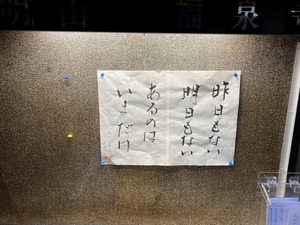 昨日もない
明日もない
あるのは
いまだけ